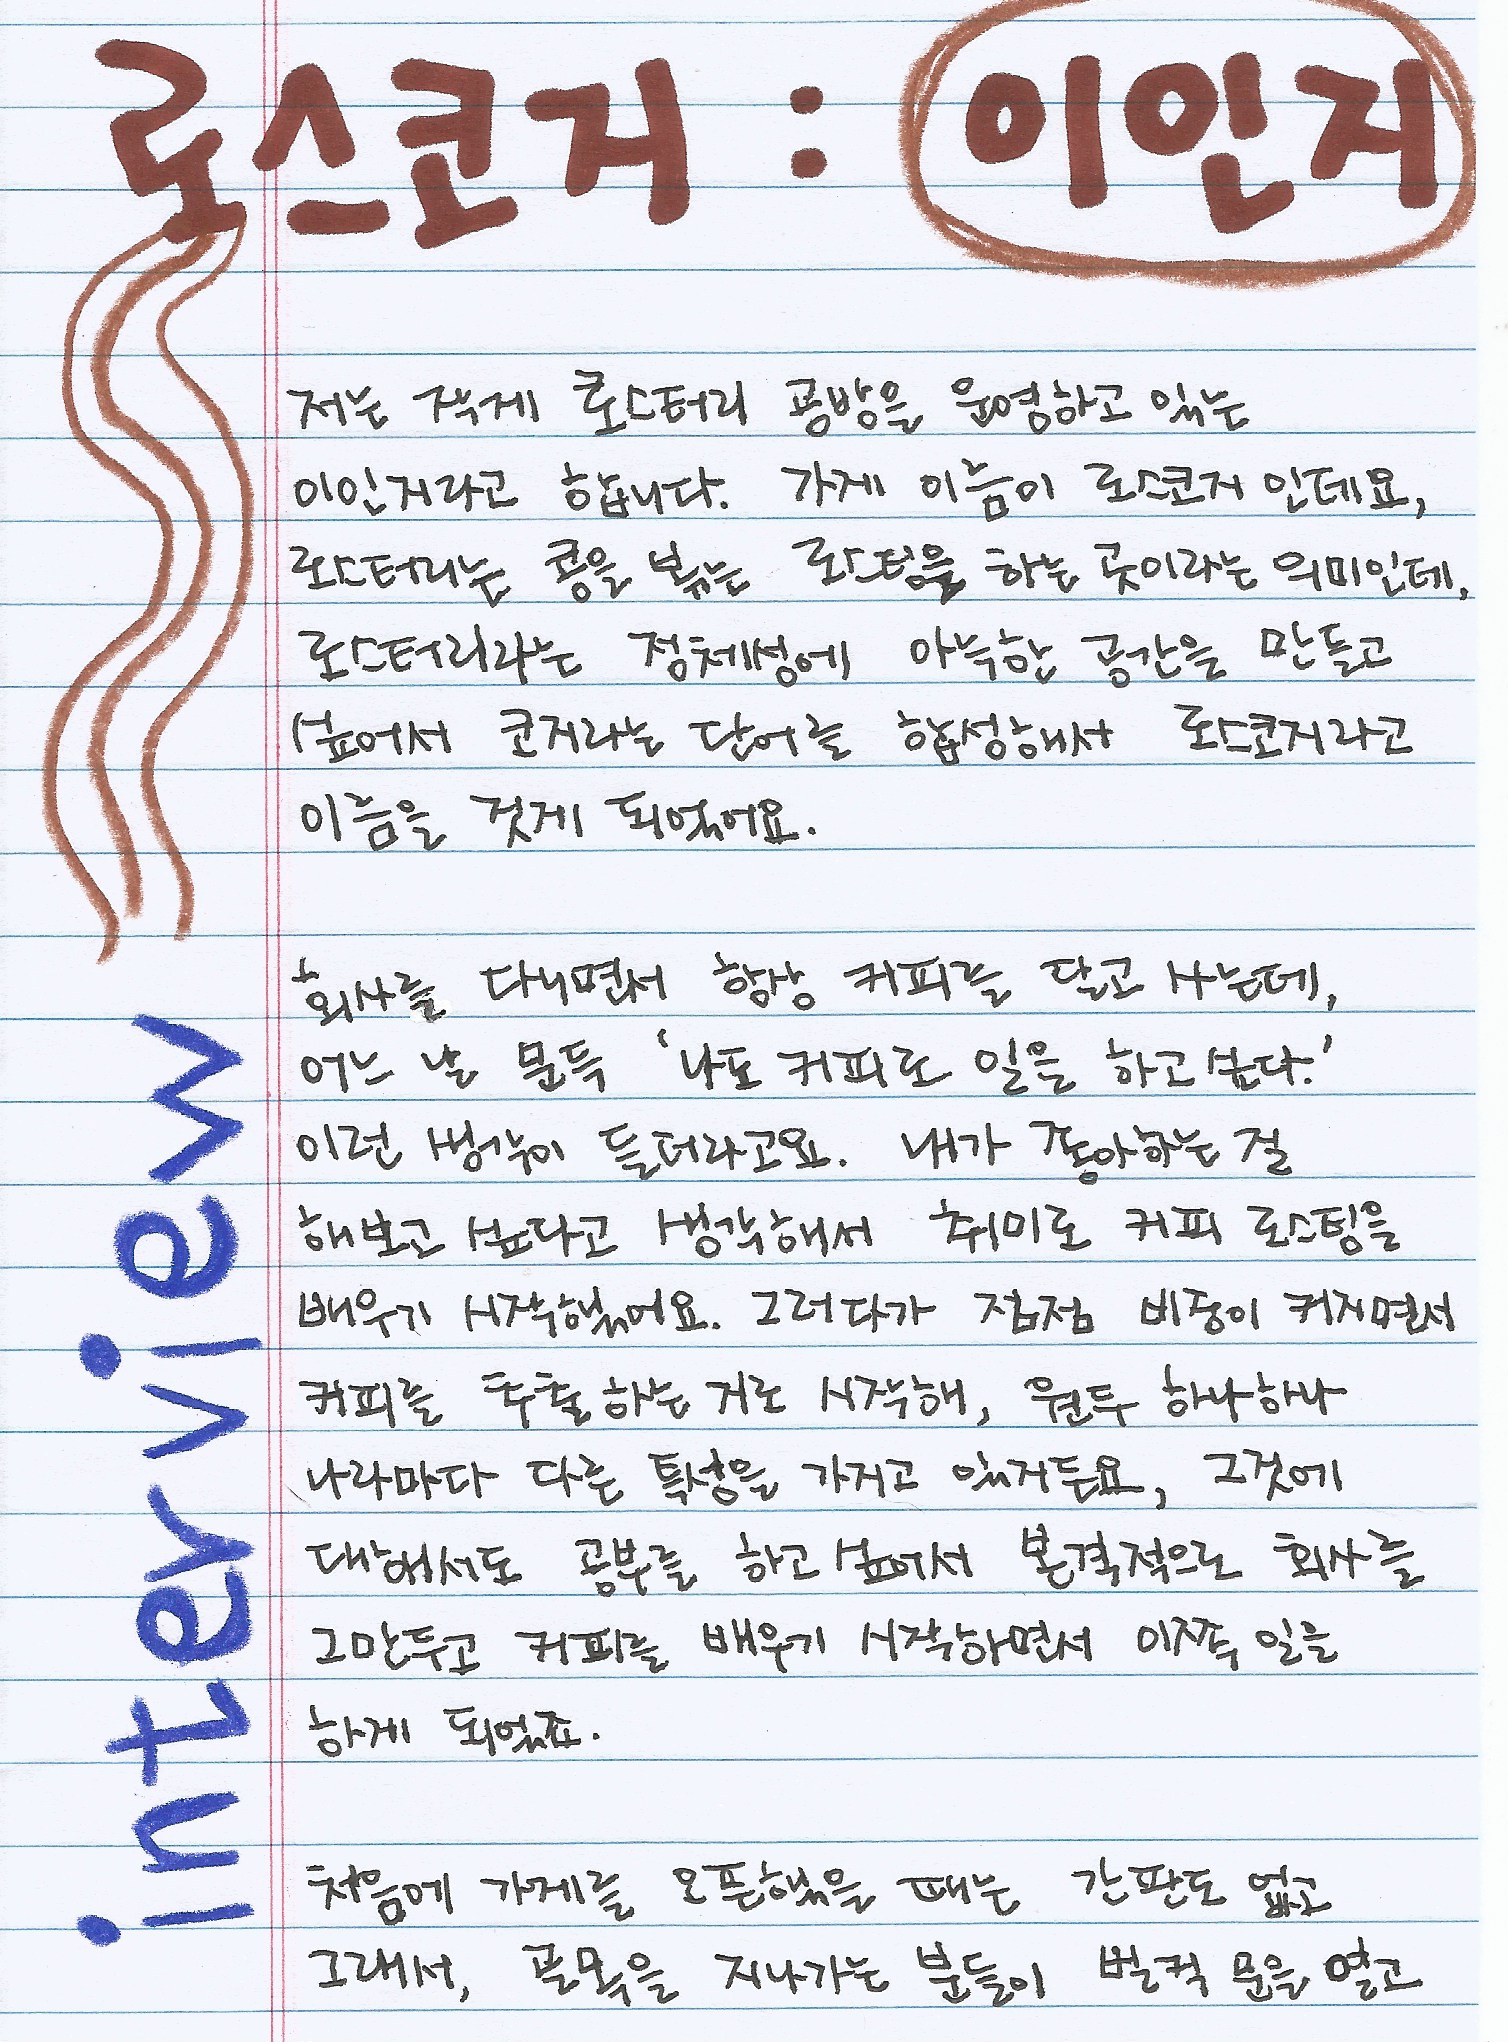 로스코지 : 이인지
저는 작게 로스터리 공방을 운영하고 있는
이인지라고 합니다. 가게 이름이 로스코지 인데요,
로스터리는 콩을 볶는 로스팅을 하는 곳이라는 의미인데,
로스터리라는 정체성에 아늑한 공간을 만들고
싶어서 코지라는 단어를 합성해서 로스코지라고
이름을 짓게 되었어요.
회사를 다니면서 항상 커피를 달고 사는데,
어느 날 문득 '나도 커피로 일을 하고 싶다.'
이런 생각이 들더라고요. 내가 좋아하는 걸
해보고 싶다고 생각해서 취미로 커피 로스팅을
배우기 시작했어요. 그러다가 점점 비중이 커지면서
커피를 추출하는 거로 시작해, 원두 하나하나
나라마다 다른 특성을 가지고 있거든요, 그것에
대해서도 공부를 하고 싶어서 본격적으로 회사를
그만두고 커피를 배우기 시작하면서 이쪽 일을
하게 되었죠.
처음에 가게를 오픈했을 때는 간판도 없고
그래서, 골목을 지나가는 분들이 벌컥 문을 열고
interview